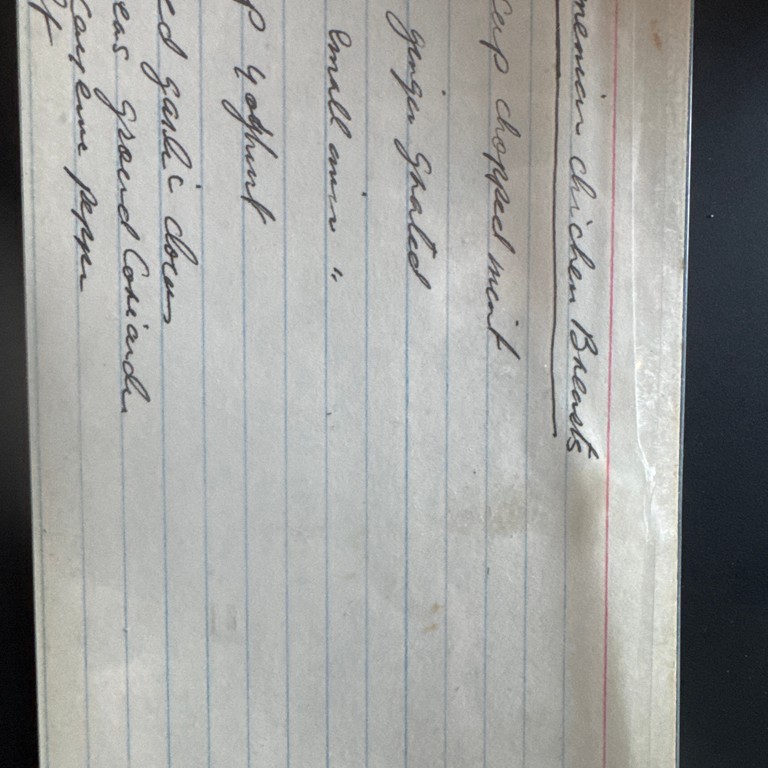 menian chicken Breasts
cup chopped mint
ginger Grated
Small onion "
p yoghurt
ed garlic cloves
eas Ground Coriander
Cayenne pepper